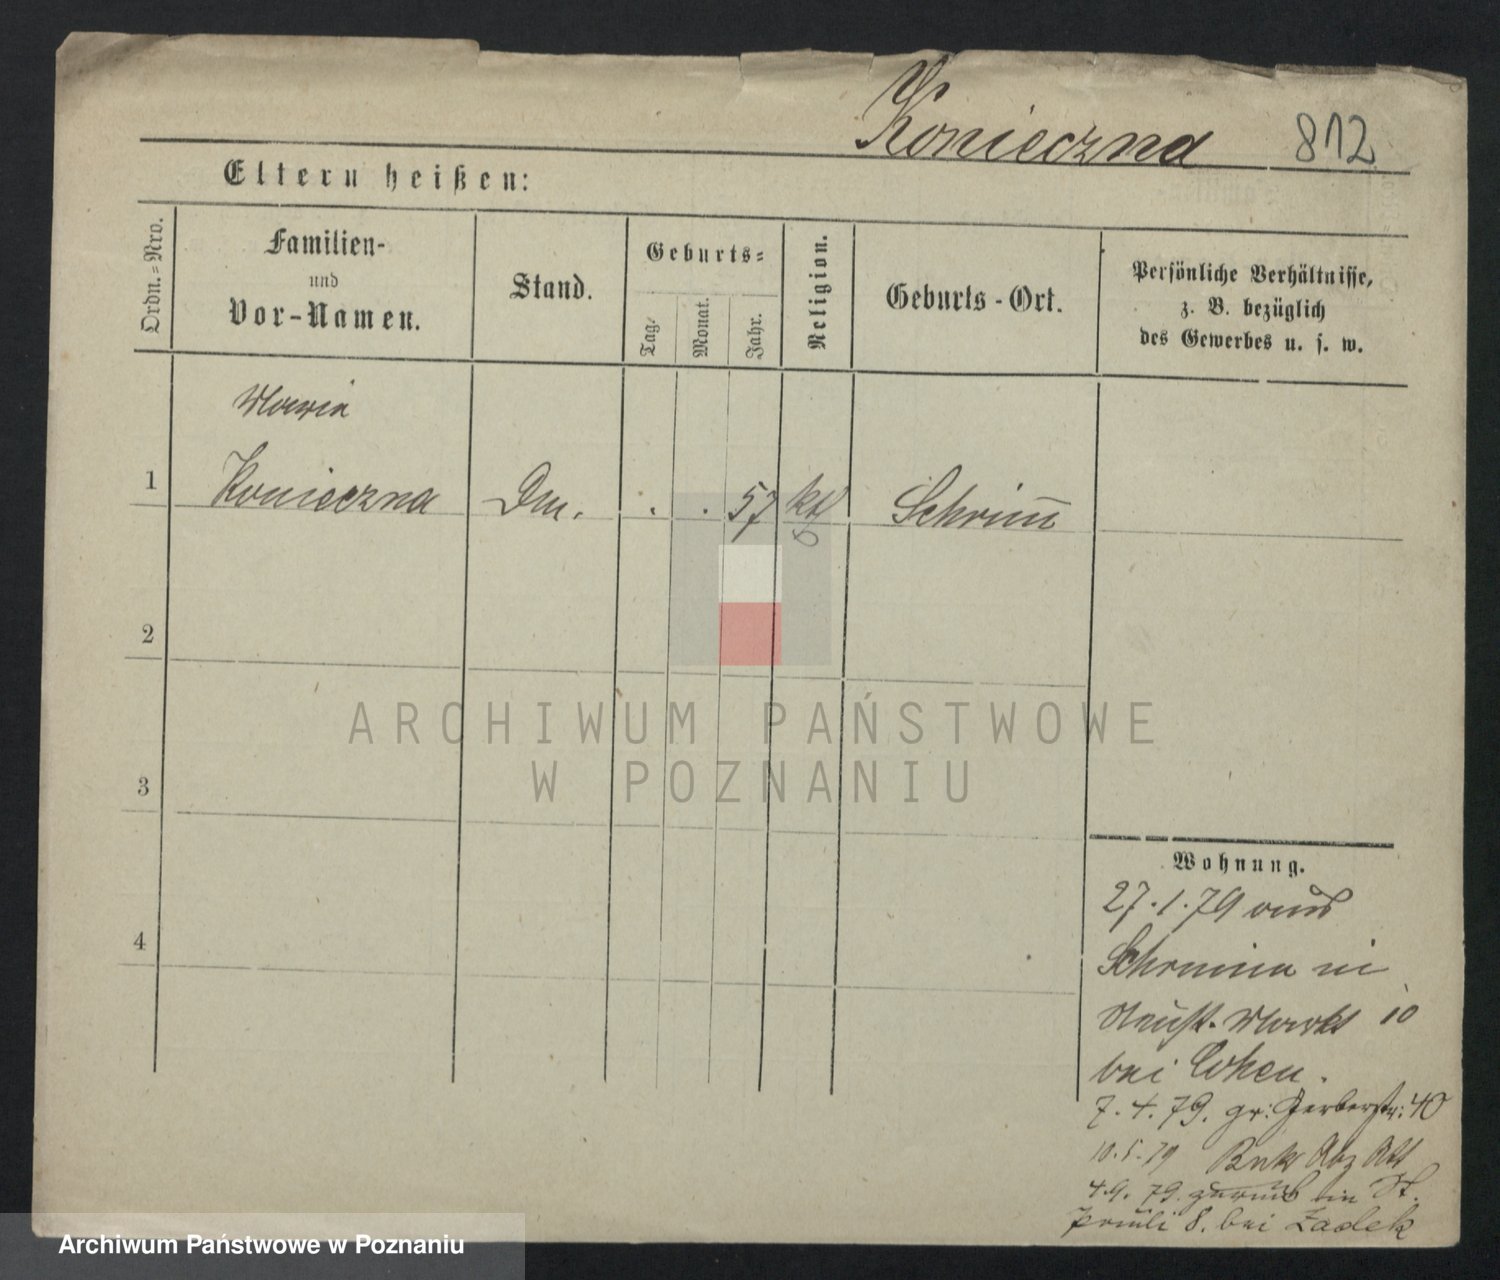 Konieczna 812
Eltern heißen:
Ordn.=Nro.
Familien-
und
Vor-Namen.
Stand.
Geburts=
Tag.
Monat.
Jahr.
Religion.
Geburts-Ort.
Persönliche Verhältnisse,
z. B. bezüglich
des Gewerbes u. s. w.
Maria
1 Konieczna Dm. . . 57 kth Schrim̅
2
3
4
Wohnung.
27.1.79 aus
Schrimm in
Neust. Markt 10
bei Cohen.
7.4.79. gr: Gerberstr: 40
10.5.79 Abz Att
4.9.79. zurück in St.
8. bei Zadek
ARCHIWUM PAŃSTWOWE
W POZNANIU
Archiwum Państwowe w Poznaniu